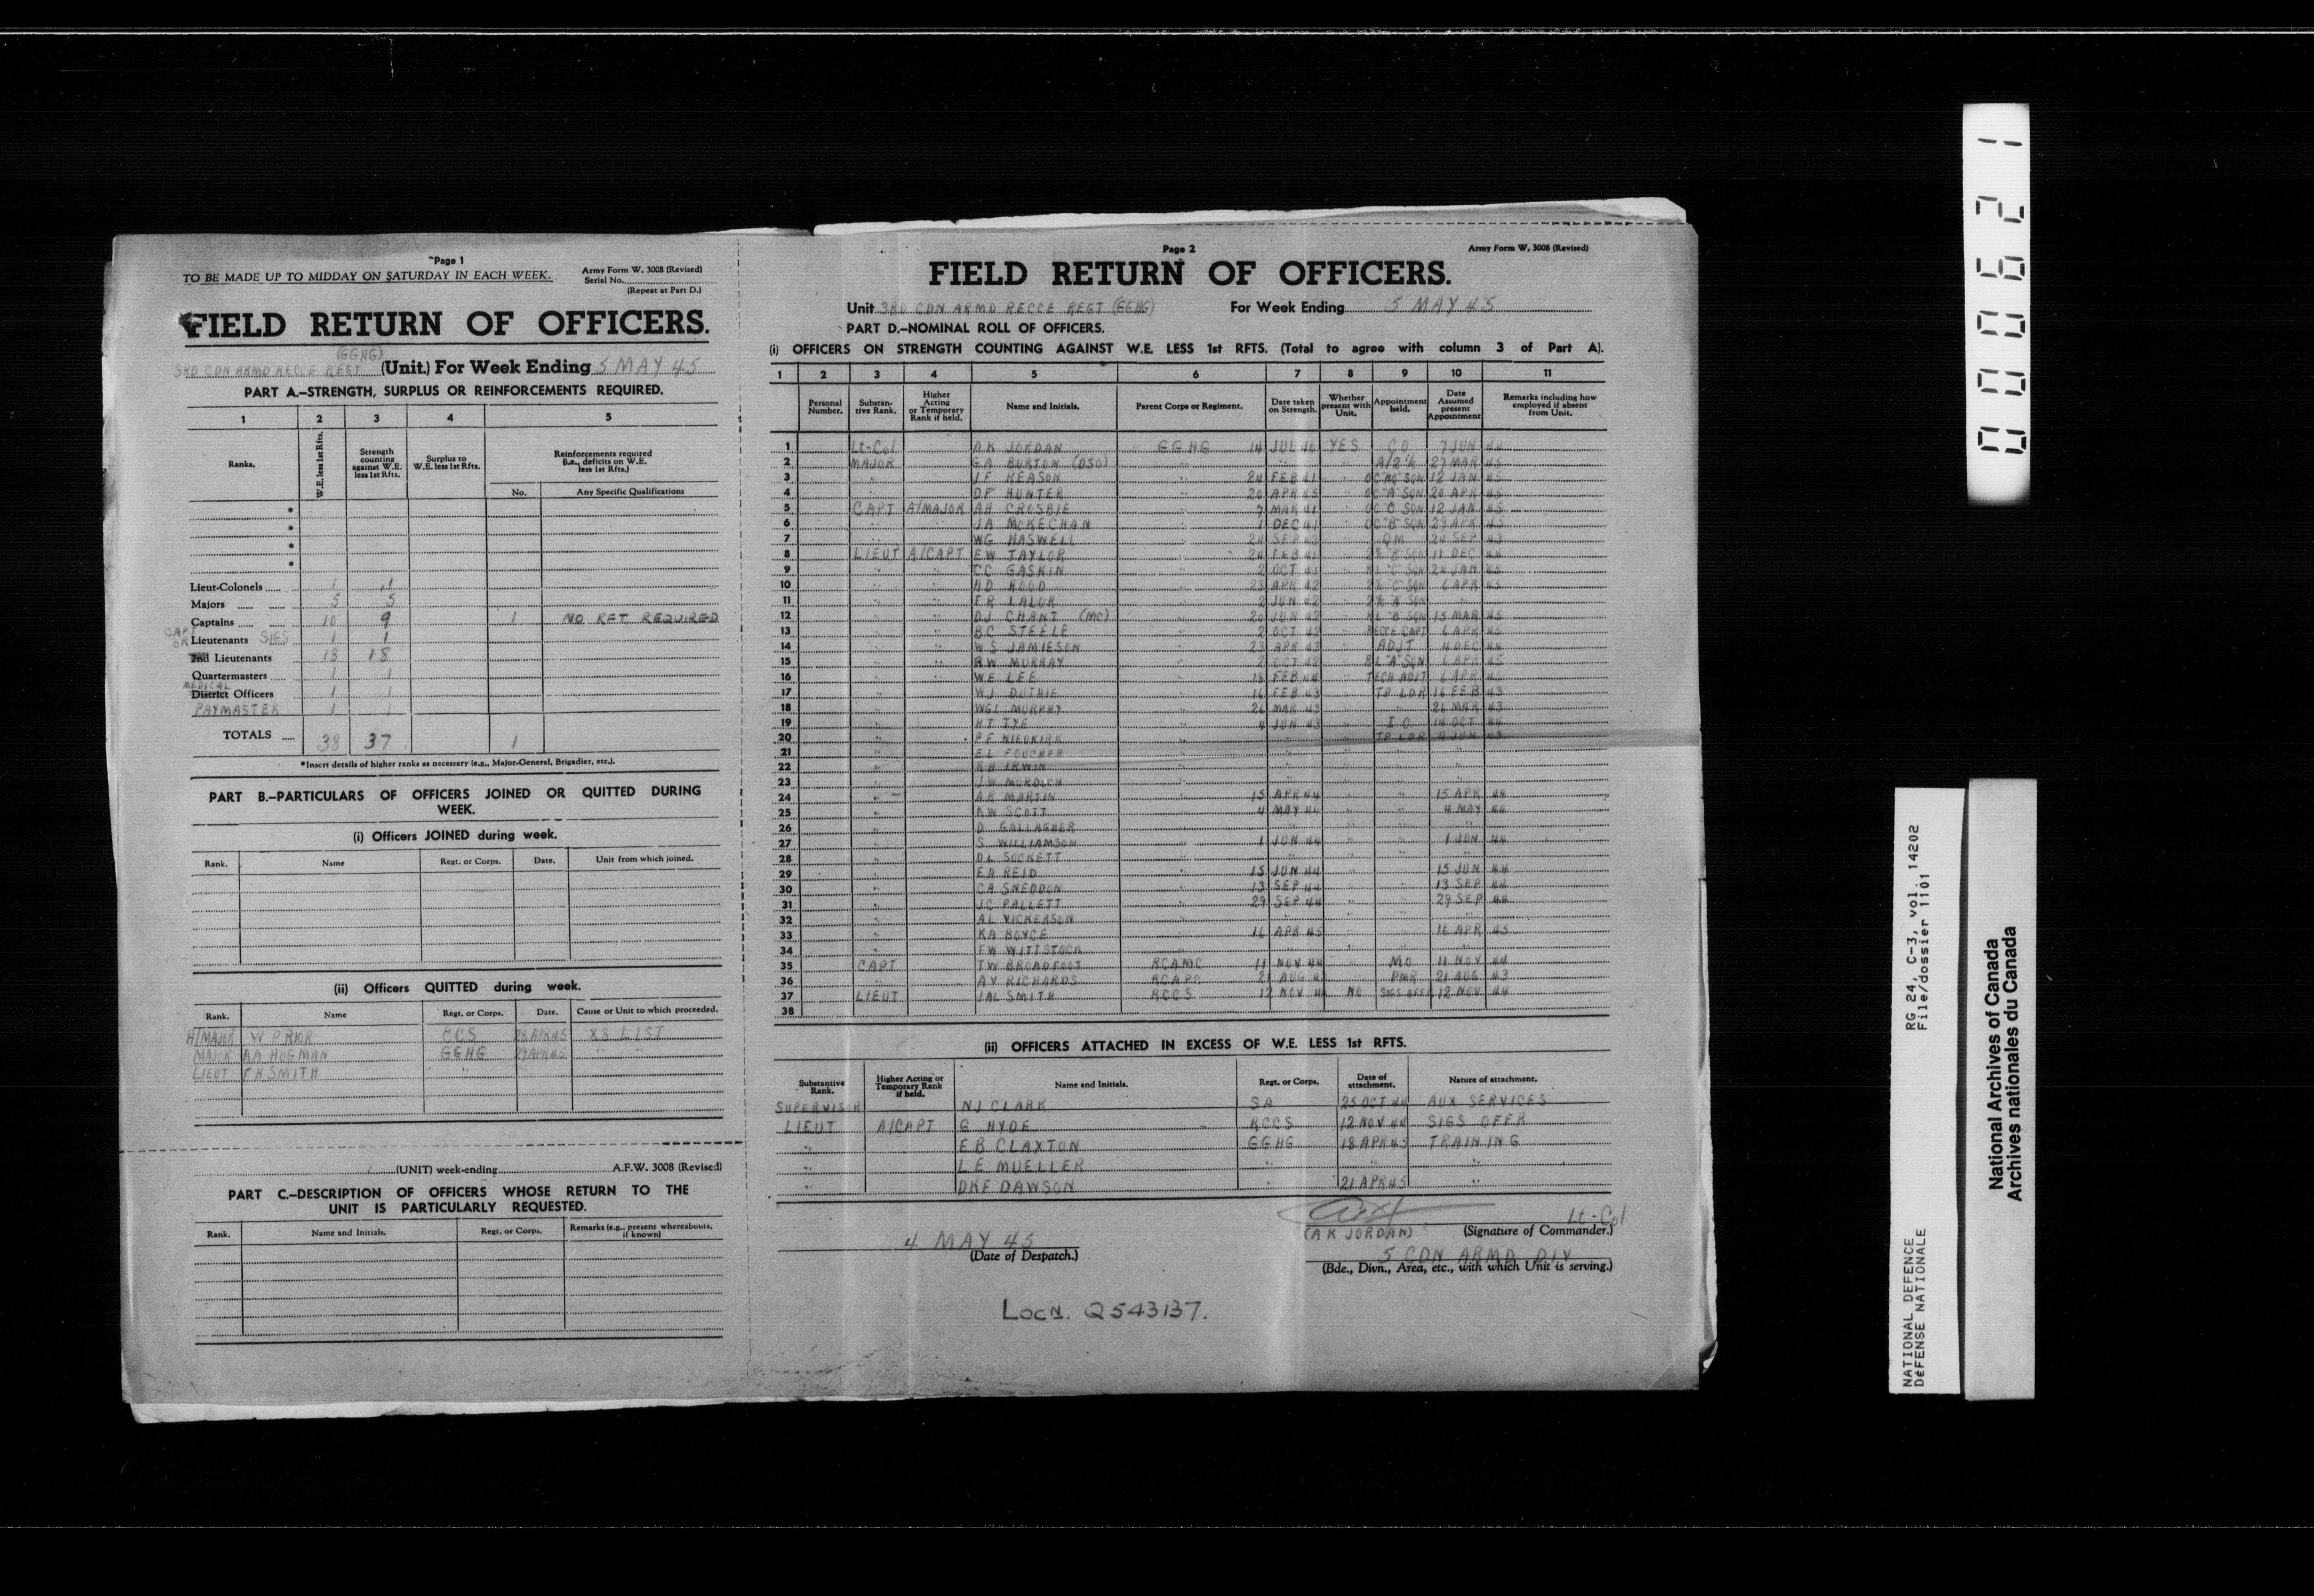 Page 1
TO BE MADE UP TO MIDDAY ON SATURDAY IN EACH WEEK.
Army Form W. 3008 (Revised)
Serial No.
(Repeat at Part D.)
FIELD RETURN OF OFFICERS.
(GGHG)
3RD CDN ARMD RECCE REGT (Unit.) For Week Ending 5 MAY 45
PART A.—STRENGTH, SURPLUS OR REINFORCEMENTS REQUIRED.
1 2 3 4 5
Ranks. W.E. less 1st Rfts. Strength counting against W.E. less 1st Rfts. Surplus to W.E. less 1st Rfts. Reinforcements required (i.e., deficits on W.E. less 1st Rfts.)
No. Any Specific Qualifications
*
*
*
*
Lieut-Colonels 1 1
Majors 5 5
Captains 10 9 1 NO RET REQUIRED
CAPT OR Lieutenants SIGS 1 1
2nd Lieutenants 18 18
Quartermasters 1 1
MEDICAL
District Officers 1 1
PAYMASTER 1 1
TOTALS 38 37 1
*Insert details of higher ranks as necessary (e.g., Major-General, Brigadier, etc.).
PART B.—PARTICULARS OF OFFICERS JOINED OR QUITTED DURING WEEK.
(i) Officers JOINED during week.
Rank. Name Regt. or Corps. Date. Unit from which joined.
(ii) Officers QUITTED during week.
Rank. Name Regt. or Corps. Date. Cause or Unit to which proceeded.
H/MAJOR W PRIOR CCS 28 APR 45 XS LIST
MAJOR AA HUGMAN GGHG 29 APR 45 " "
LIEUT F H SMITH "
(UNIT) week-ending A.F.W. 3008 (Revised)
PART C.—DESCRIPTION OF OFFICERS WHOSE RETURN TO THE UNIT IS PARTICULARLY REQUESTED.
Rank. Name and Initials. Regt. or Corps. Remarks (e.g., present whereabouts, if known)
Page 2
Army Form W. 3008 (Revised)
FIELD RETURN OF OFFICERS.
Unit 3RD CDN ARMD RECCE REGT (GGHG) For Week Ending 5 MAY 45
PART D.—NOMINAL ROLL OF OFFICERS.
(i) OFFICERS ON STRENGTH COUNTING AGAINST W.E. LESS 1st RFTS. (Total to agree with column 3 of Part A).
1 2 3 4 5 6 7 8 9 10 11
Personal Number. Substantive Rank. Higher Acting or Temporary Rank if held. Name and Initials. Parent Corps or Regiment. Date taken on Strength. Whether present with Unit. Appointment held. Date Assumed present Appointment Remarks including how employed if absent from Unit.
1 Lt-Col A K JORDAN GGHG 14 JUL 40 YES CO 7 JUN 44
2 MAJOR GA BURTON (DSO) " " A/2 i/c 27 MAR 45
3 " J F REASON " 24 FEB 41 " OC "HQ" SQN 12 JAN 45
4 " DF HUNTER " 20 APR 45 " OC "A" SQN 20 APR 45
5 CAPT A/MAJOR AH CROSBIE " 7 MAR 41 " OC "C" SQN 12 JAN 45
6 " " JA McKECHAN " 1 DEC 41 " OC "B" SQN 29 APR 45
7 " WG HASWELL " 24 SEP 43 " QM 24 SEP 43
8 LIEUT A/CAPT EW TAYLOR " 24 FEB 41 " 2i/c "B" SQN 11 DEC 44
9 " " CC GASKIN " 2 OCT 41 " RL "C" SQN 24 JAN 45
10 " " HD HOOD " 23 APR 42 " 2i/c "C" SQN 6 APR 45
11 " " F R LALOR " 2 JUN 42 " 2i/c "A" SQN "
12 " " DJ CHANT (MC) " 20 JUN 42 " RL "B" SQN 15 MAR 45
13 " " BC STEELE " 2 OCT 42 " RECCE CAPT 6 APR 45
14 " " W S JAMIESON " 23 APR 43 " ADJT 4 DEC 44
15 " " RW MURRAY " 2 OCT 42 " RL "A" SQN 6 APR 45
16 " " WE LEE " 18 FEB 44 " TECH ADJT 6 APR 45
17 " WJ DUTHIE " 16 FEB 43 " TP LDR 16 FEB 43
18 " WGL MURPHY " 26 MAR 43 " " 26 MAR 43
19 " HT TYE " 4 JUN 43 " I O 14 OCT 44
20 " PF NIEUKIRK " " " TP LDR 4 JUN 43
21 " EL FOUCHER " " " " "
22 " RH IRWIN " " " " "
23 " JW MURDICH " " " " "
24 " AR MARTIN " 15 APR 44 " " 15 APR 44
25 " KW SCOTT " 4 MAY 44 " " 4 MAY 44
26 " D GALLAGHER " " " " "
27 " S WILLIAMSON " 1 JUN 44 " " 1 JUN 44
28 " DL SOCKETT " " " " "
29 " EA REID " 15 JUN 44 " " 15 JUN 44
30 " CA SNEDDON " 13 SEP 44 " " 13 SEP 44
31 " JC PALLETT " 29 SEP 44 " " 29 SEP 44
32 " AL VICKERSON " " " " "
33 " KA BOYCE " 16 APR 45 " " 16 APR 45
34 " FW WITTSTOCK " " " " "
35 CAPT TW BROADFOOT RCAMC 11 NOV 44 " MO 11 NOV 44
36 " AY RICHARDS RCAPC 21 AUG 43 " PMR 21 AUG 43
37 LIEUT JAL SMITH RCCS 12 NOV 44 NO SIGS OFFR 12 NOV 44
38
(ii) OFFICERS ATTACHED IN EXCESS OF W.E. LESS 1st RFTS.
Substantive Rank. Higher Acting or Temporary Rank if held. Name and Initials. Regt. or Corps. Date of attachment. Nature of attachment.
SUPERVISOR NJ CLARK SA 25 OCT 44 AUX SERVICES
LIEUT A/CAPT G HYDE RCCS 12 NOV 44 SIGS OFFR
" EB CLAXTON GGHG 18 APR 45 TRAINING
" LE MUELLER " " "
" DKF DAWSON " 21 APR 45 "
4 MAY 45
(Date of Despatch.)
Lt-Col
(A K JORDAN) (Signature of Commander.)
5 CDN ARMD DIV
(Bde., Divn., Area, etc., with which Unit is serving.)
LOCN. Q543137.
000621
NATIONAL DEFENCE RG 24, C-3, vol. 14202
DÉFENSE NATIONALE File/dossier 1101
National Archives of Canada
Archives nationales du Canada